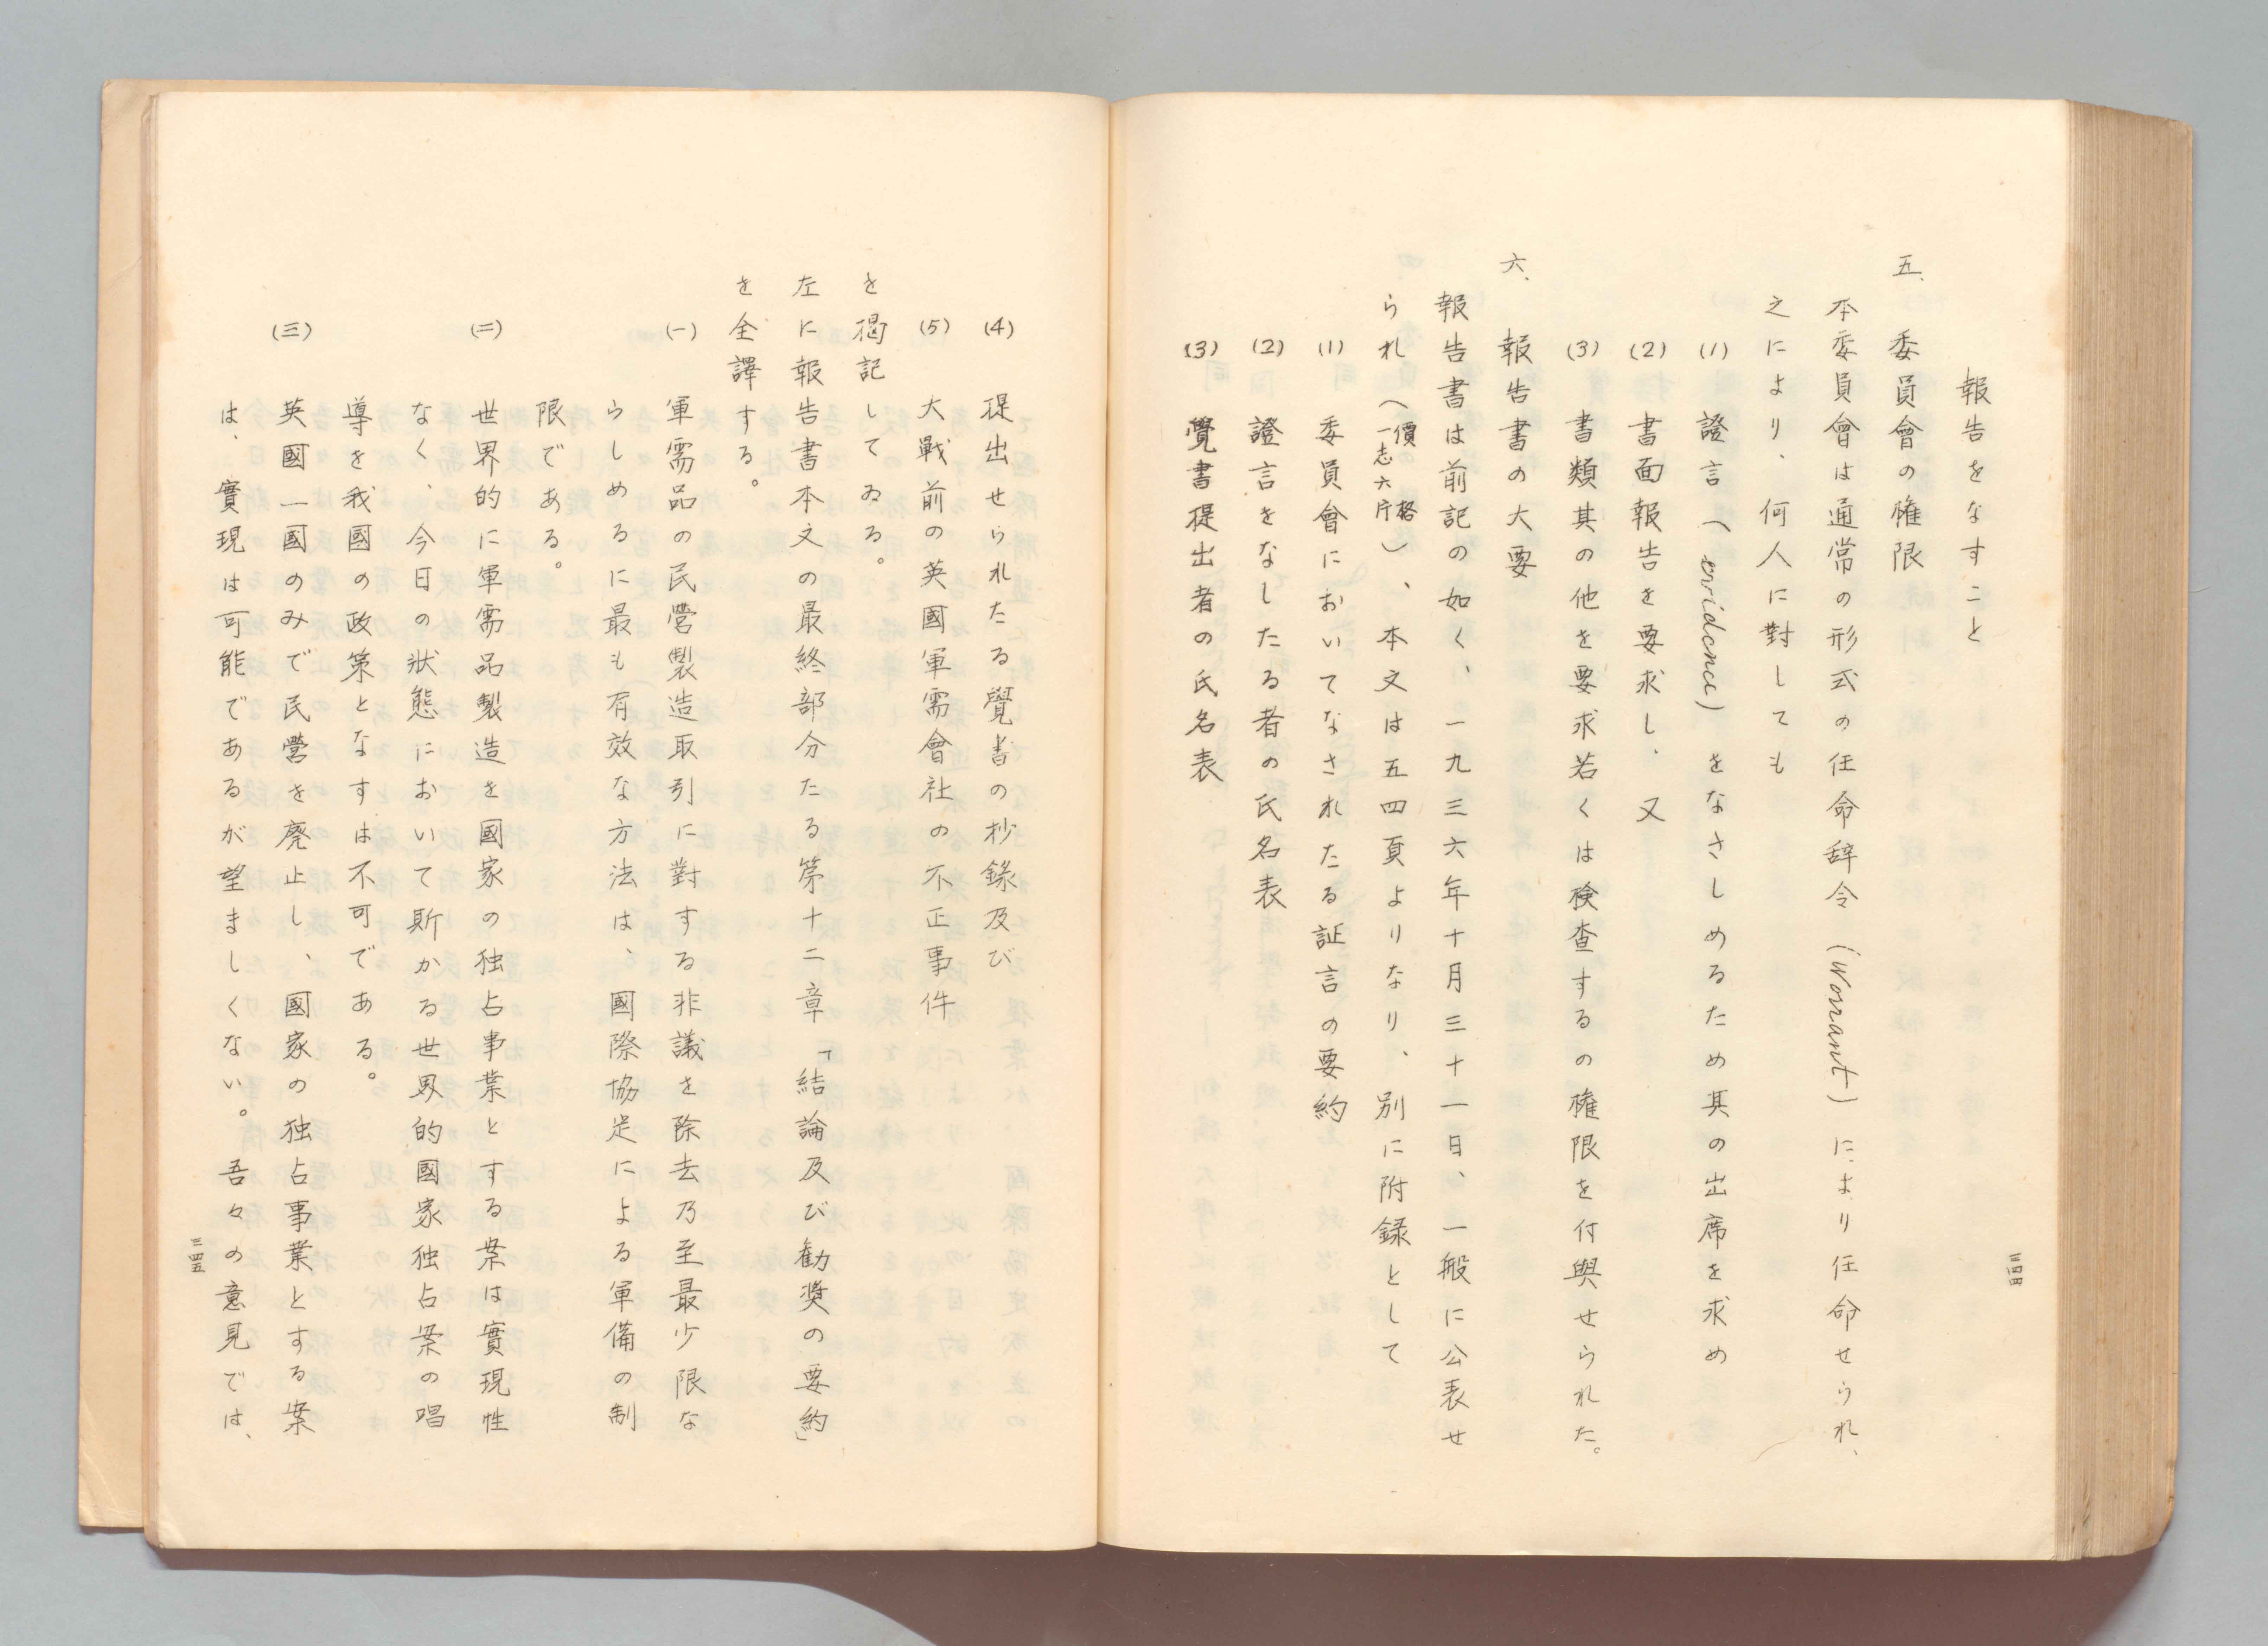 報告をなすこと
五、委員會の権限
本委員會は通常の形式の任命辞令(Worant)により任命せられ、
之により、何人に對しても
(1) 證言(evidence)をなさしめるため其の出席を求め
(2) 書面報告を要求し、又
(3) 書類其の他を要求若くは検査するの権限を付與せられた。
六、報告書の大要
報告書は前記の如く、一九三六年十月三十一日、一般に公表せ
られ(價格一志六片)、本文は五四頁よりなり、別に附録として
(1) 委員會においてなされたる証言の要約
(2) 證言をなしたる者の氏名表
(3) 覺書提出者の氏名表
三四四
(4) 提出せられたる覺書の抄錄及び
(5) 大戰前の英國軍需會社の不正事件
を揭記してゐる。
左に報告書本文の最終部分たる第十二章「結論及び勧奨の要約」
を全譯する。
(一) 軍需品の民營製造取引に對する非議を除去乃至最少限な
らしめるに最も有效な方法は、國際協定による軍備の制
限である。
(二) 世界的に軍需品製造を國家の独占事業とする案は實現性
なく、今日の狀態において斯かる世界的國家独占案の唱
導を我國の政策となすは不可である。
(三) 英國一國のみで民營を廃止し、國家の独占事業とする案
は、實現は可能であるが望ましくない。吾々の意見では、
三四五